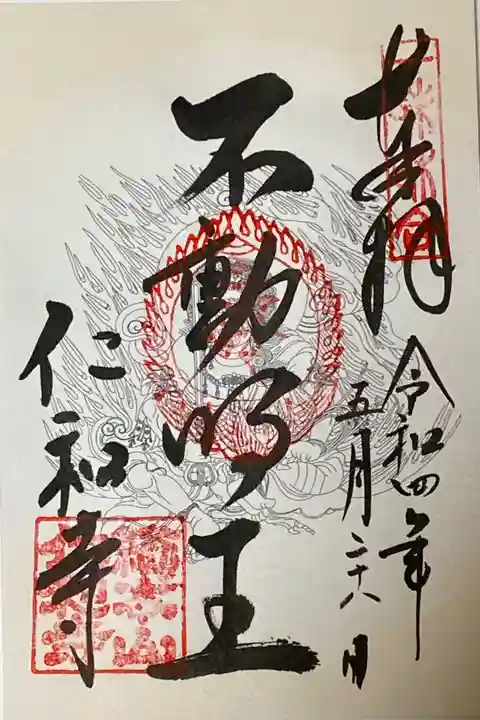 奉拝
令和四年
五月二十八日
不動明王
仁和寺